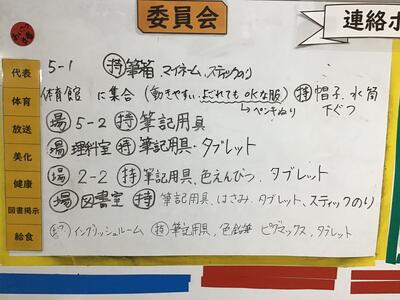 委員会
連絡ボ
代表 5-1 持 筆箱 マイネーム、スティックのり
体育 体育館 に集合(動きやすい、よごれてもOKな服) 持 帽子、水筒
→ペンキぬり 下ぐつ
放送 場 5-2 持 筆記用具
美化 場 理科室 持 筆記用具・タブレット
健康 場 2-2 持 筆記用具、色えんぴつ、タブレット
図書掲示 場 図書室 持 筆記用具、はさみ、タブレット、スティックのり
給食 イングリッシュルーム 持 筆記用具、色鉛筆 ピグマックス、タブレット